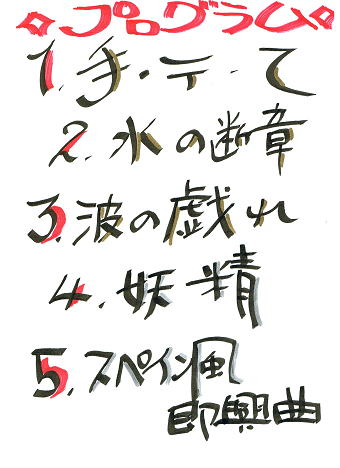 プログラム
1. 手・テ・て
2. 水の断章
3. 波の戯れ
4. 妖精
5. スペイン風
即興曲